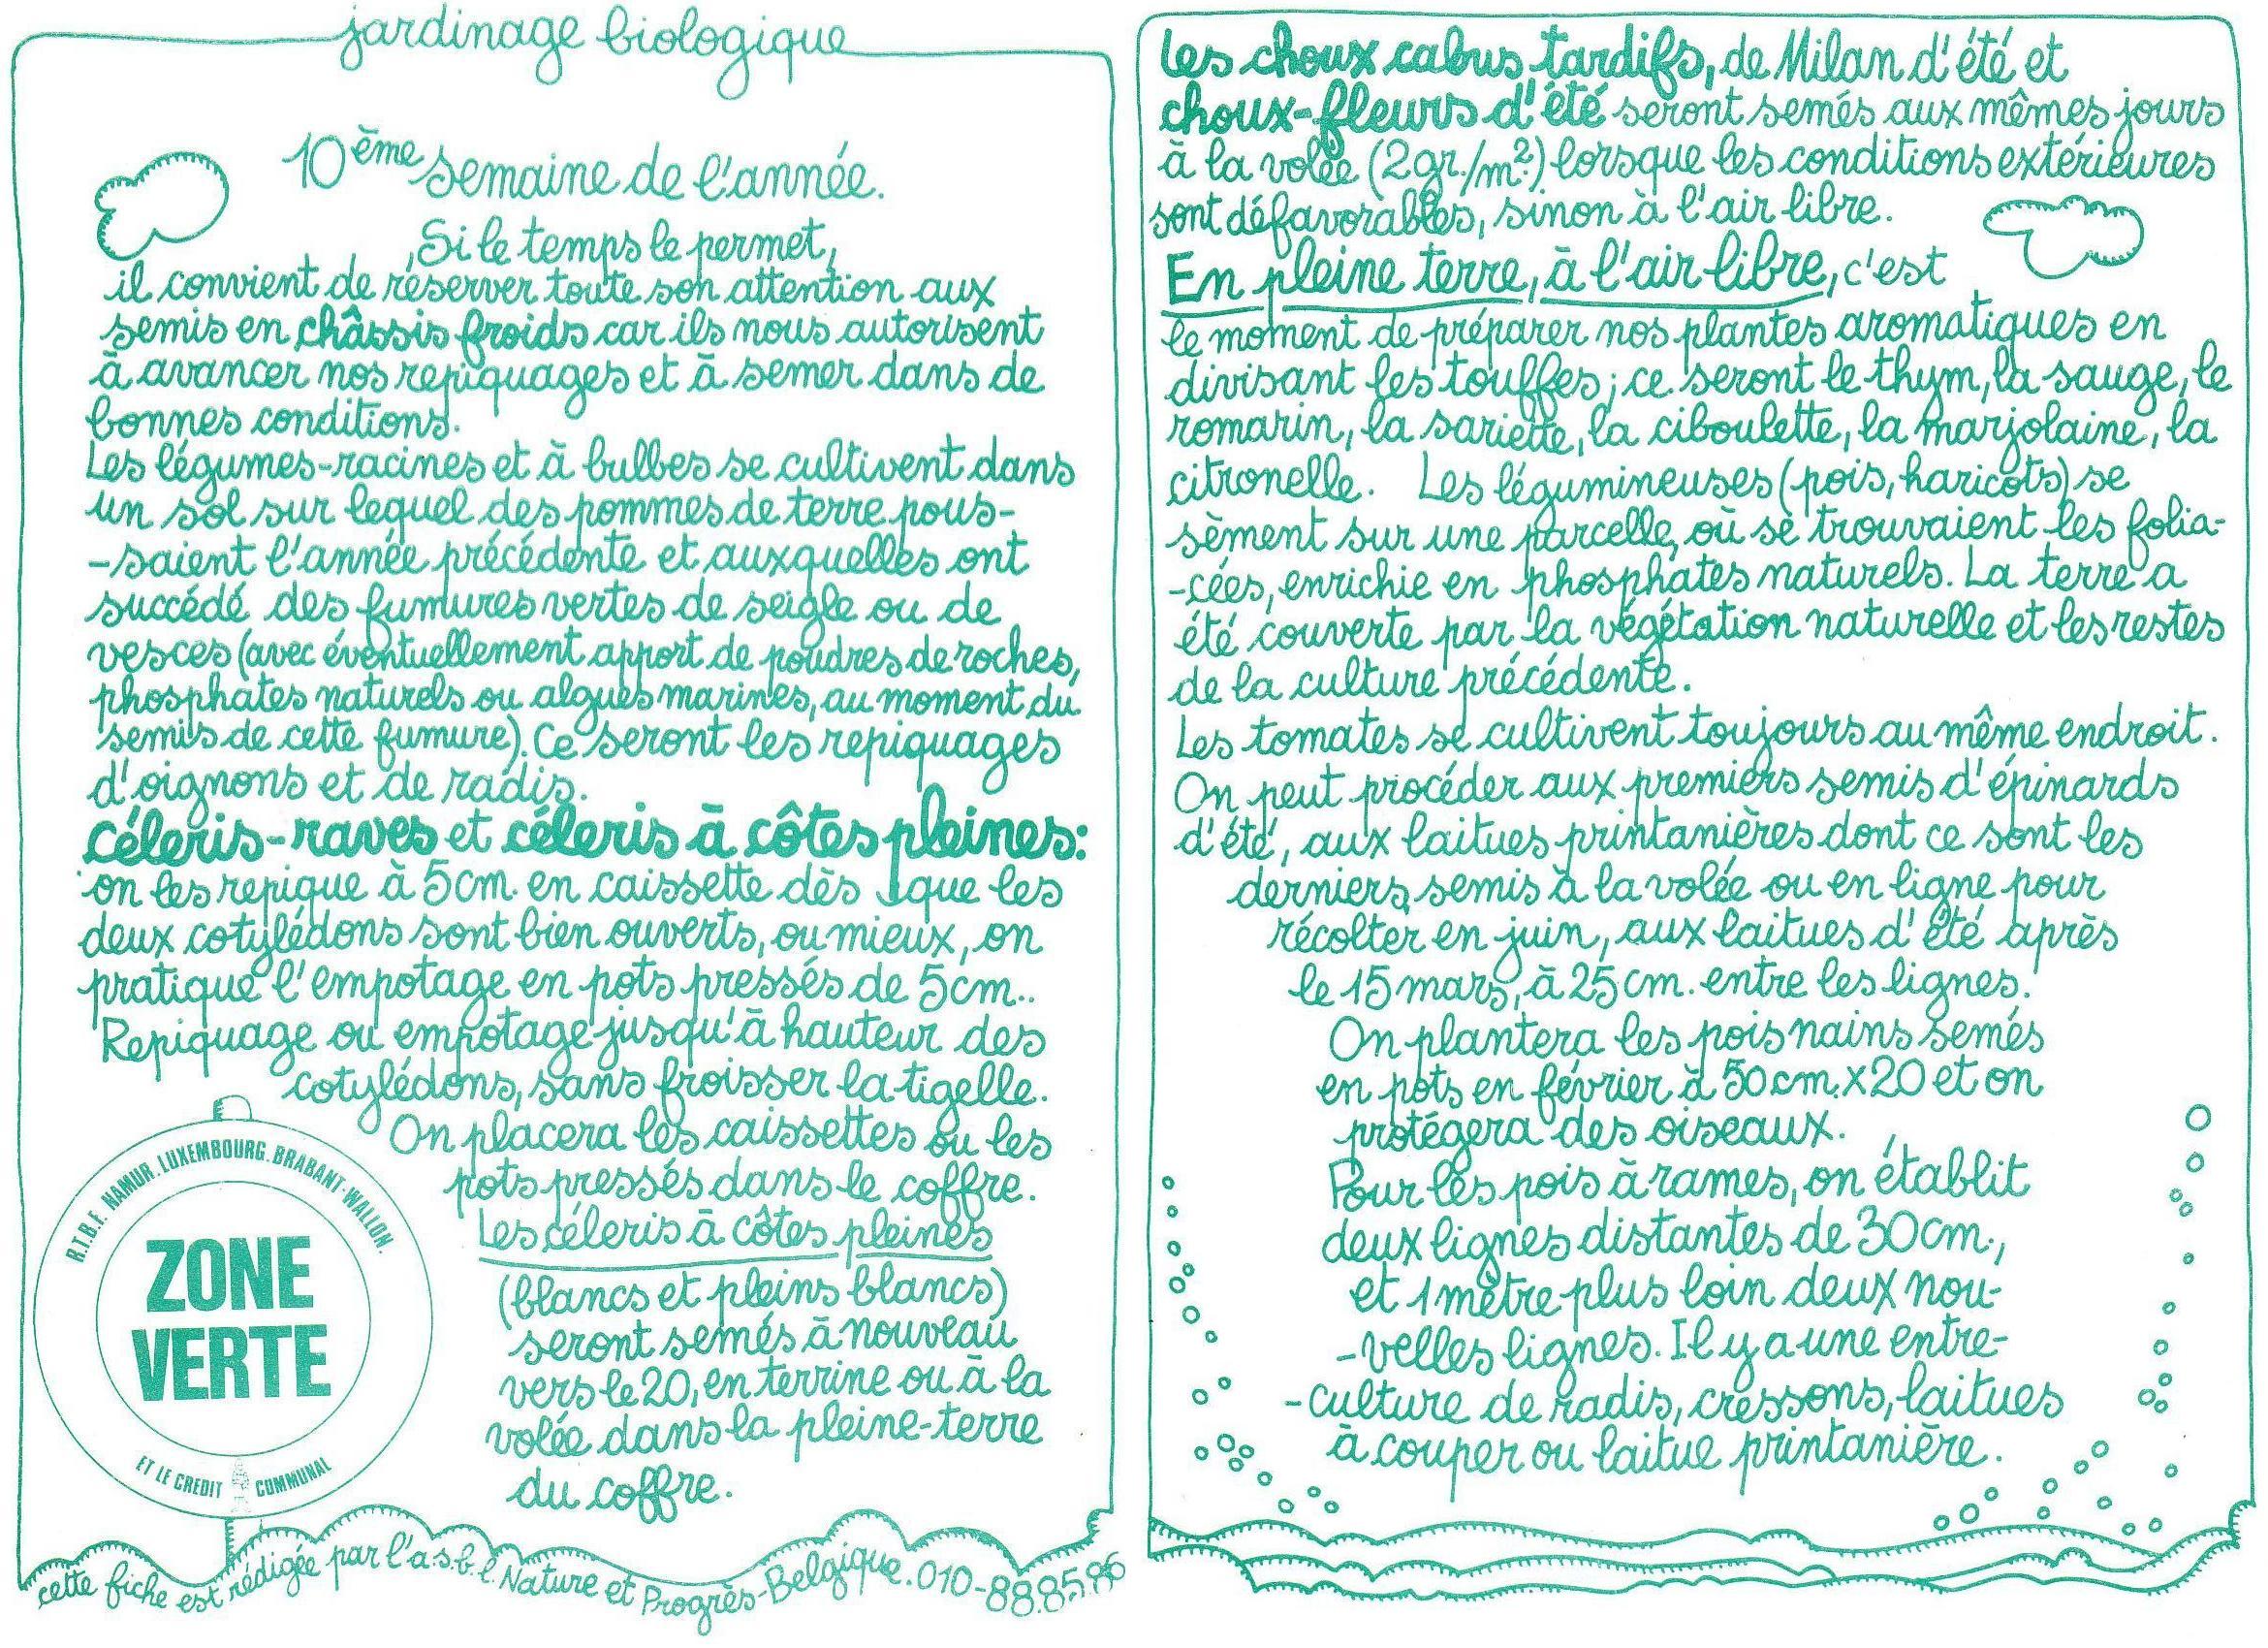 jardinage biologique
10ème semaine de l'année.
Si le temps le permet,
il convient de réserver toute son attention aux
semis en châssis froids car ils nous autorisent
à avancer nos repiquages et à semer dans de
bonnes conditions.
Les légumes-racines et à bulbes se cultivent dans
un sol sur lequel des pommes de terre pous-
-saient l'année précédente et auxquelles ont
succédé des fumures vertes de seigle ou de
vesces (avec éventuellement apport de poudres de roches,
phosphates naturels ou algues marines, au moment du
semis de cette fumure). Ce seront les repiquages
d'oignons et de radis.
Céleris-raves et céleris à côtes pleines:
on les repique à 5cm. en caissette dès que les
deux cotylédons sont bien ouverts, ou mieux, on
pratique l'empotage en pots pressés de 5cm..
Repiquage ou empotage jusqu'à hauteur des
cotylédons, sans froisser la tigelle.
On placera les caissettes ou les
pots pressés dans le coffre.
Les céleris à côtes pleines
(blancs et pleins blancs)
seront semés à nouveau
vers le 20, en terrine ou à la
volée dans la pleine-terre
du coffre.
R.T.B.F. NAMUR. LUXEMBOURG. BRABANT-WALLON.
ZONE
VERTE
ET LE CREDIT COMMUNAL
cette fiche est rédigée par l'a.s.b.l. Nature et Progrès-Belgique. 010-88.85.86
les choux cabus tardifs, de Milan d'été et
choux-fleurs d'été seront semés aux mêmes jours
à la volée (2gr./m².) lorsque les conditions extérieures
sont défavorables, sinon à l'air libre.
En pleine terre, à l'air libre, c'est
le moment de préparer nos plantes aromatiques en
divisant les touffes; ce seront le thym, la sauge, le
romarin, la sariette, la ciboulette, la marjolaine, la
citronelle. Les légumineuses (pois, haricots) se
sèment sur une parcelle, où se trouvaient les folia-
-cées, enrichie en phosphates naturels. La terre a
été couverte par la végétation naturelle et les restes
de la culture précédente.
Les tomates se cultivent toujours au même endroit.
On peut procéder aux premiers semis d'épinards
d'été, aux laitues printanières dont ce sont les
derniers semis à la volée ou en ligne pour
récolter en juin, aux laitues d'été après
le 15 mars, à 25 cm. entre les lignes.
On plantera les pois nains semés
en pots en février à 50 cm. x 20 et on
protégera des oiseaux.
Pour les pois à rames, on établit
deux lignes distantes de 30cm.,
et 1 mètre plus loin deux nou-
-velles lignes. Il y a une entre-
-culture de radis, cressons, laitues
à couper ou laitue printanière.